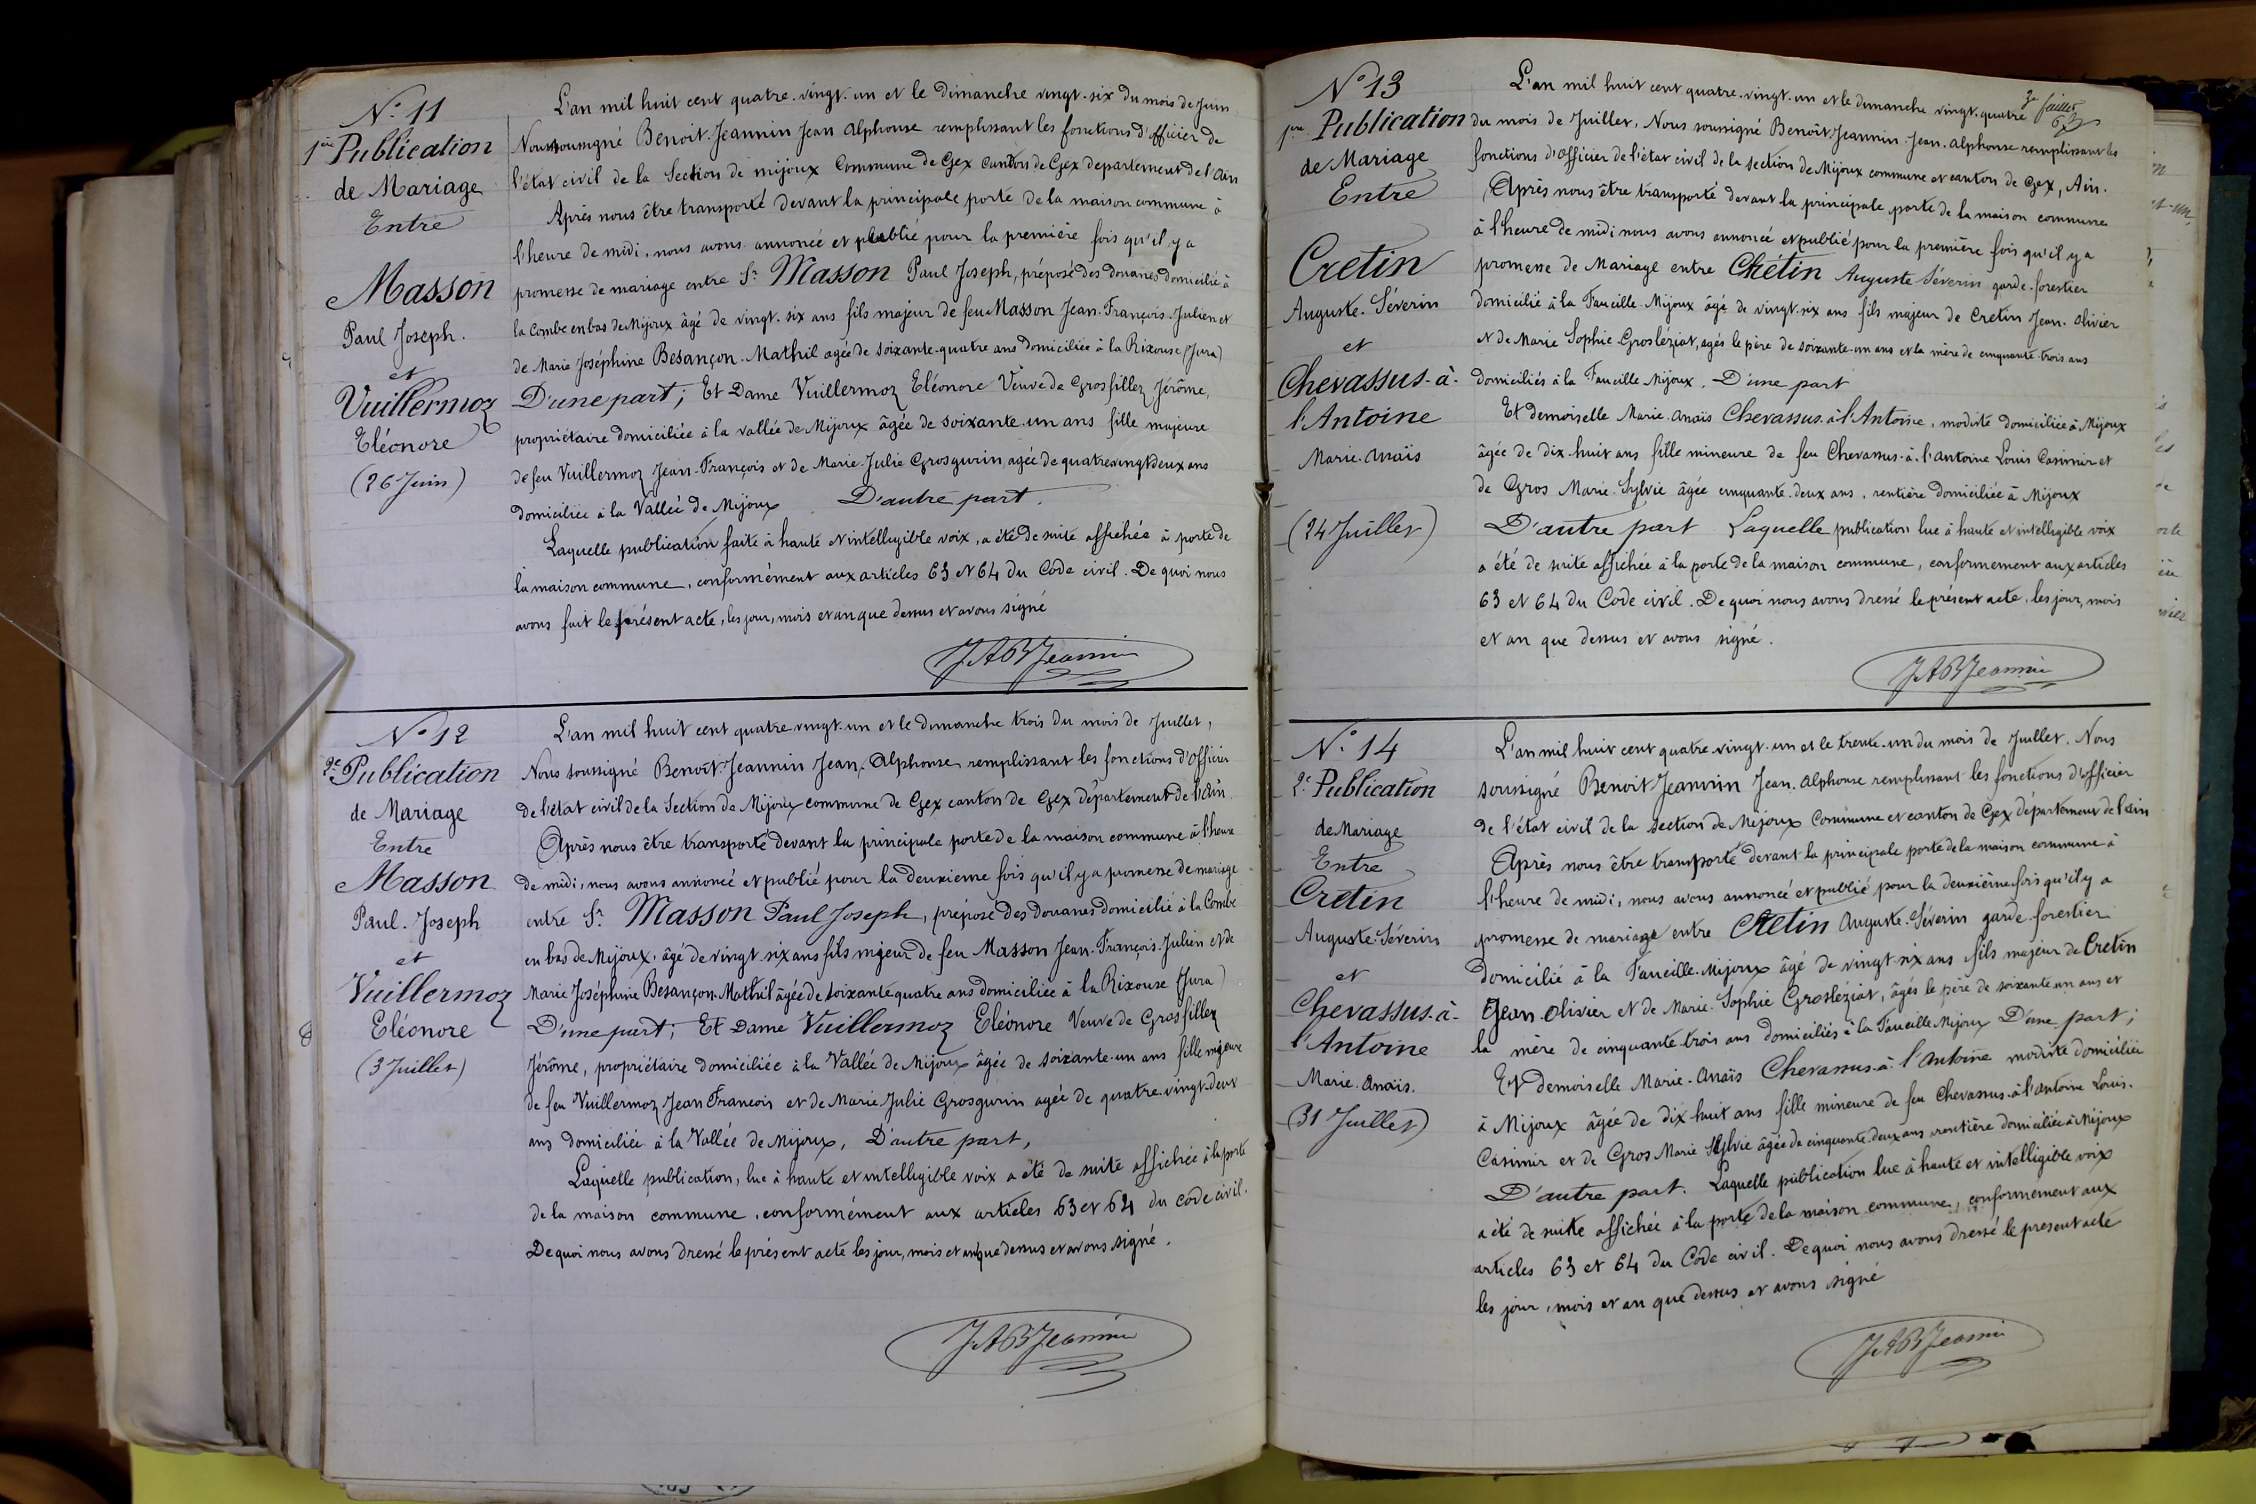 N° 11
1ère Publication
de Mariage
Entre
Masson
Paul Joseph.
et
Vuillermoz
Eléonore
(26 Juin)
L'an mil huit cent quatre-vingt-un et le dimanche vingt-six du mois de Juin
Nous soussigné Benoit-Jeannin Jean Alphonse remplissant les fonctions d'officier de
l'état civil de la Section de mijoux Commune de Gex canton de Gex departement de l'Ain
Après nous être transporté devant la principale porte de la maison commune à
l'heure de midi, nous avons annoncée et publié pour la première fois qu'il y a
promesse de mariage entre Sr Masson Paul Joseph, préposé des douanes domicilié à
la Combe en bas de Mijoux âgé de vingt-six ans fils majeur de feu Masson Jean-François-Julien et
de Marie Joséphine Besançon-Mathil agée de soixante-quatre ans domiciliée à la Rixouse (Jura)
D'une part; Et Dame Vuillermoz Eléonore Veuve de Grosfillez Jérôme,
propriétaire domiciliée à la vallée de Mijoux âgée de soixante-un ans fille majeure
de feu Vuillermoz Jean-François et de Marie-Julie Grosgurin, agée de quatrevingt deux ans
domiciliée à la Vallée de Mijoux D'autre part.
Laquelle publication faite à haute et intelligible voix, a été de suite affichée à porte de
la maison commune, conformément aux articles 63 et 64 du Code civil. De quoi nous
avons fait le présent acte, les jour, mois et an que dessus et avons signé
JABJeannin
N° 12
2e Publication
de Mariage
Entre
Masson
Paul-Joseph
et
Vuillermoz
Eléonore
(3 Juillet)
L'an mil huit cent quatre vingt-un et le dimanche trois du mois de Juillet,
Nous soussigné Benoît-Jeannin Jean-Alphonse remplissant les fonctions d'officier
de l'état civil de la Section de Mijoux commune de Gex canton de Gex département de l'Ain
Après nous être transporté devant la principale porte de la maison commune à l'heure
de midi, nous avons annoncé et publié pour la deuxième fois qu'il y a promesse de mariage
entre Sr Masson Paul Joseph, préposé des Douanes domicilié à la Combe
en bas de Mijoux, âgé de vingt-six ans fils majeur de feu Masson Jean-François-Julien et de
Marie Joséphine Besançon-Mathil âgée de soixante quatre ans domiciliée à la Rixouse (Jura)
D'une part; Et Dame Vuillermoz Eléonore Veuve de Grosfillez
Jérôme, propriétaire domiciliée à la Vallée de Mijoux âgée de soixante-un ans fille majeure
de feu Vuillermoz Jean François et de Marie Julie Grosgurin agée de quatre-vingt-deux
ans domiciliée à la Vallée de Mijoux, D'autre part,
Laquelle publication, lue à haute et intelligible voix a été de suite affichée à la porte
de la maison commune, conformément aux articles 63 et 64 du code civil.
De quoi nous avons dressé le présent acte les jour, mois et an que dessus et avons signé.
JABJeannin
N° 13
1ère Publication
de Mariage
Entre
Cretin
Auguste-Séverin
et
Chevassus-à-
l'Antoine
Marie-Anaïs
(24 Juillet)
3e feuillet
L'an mil huit cent quatre-vingt-un et le dimanche vingt-quatre
du mois de Juillet, Nous soussigné Benoît-Jeannin-Jean-Alphonse remplissant les
fonctions d'officier de l'état civil de la section de Mijoux commune et canton de Gex, Ain.
Après nous être transporté devant la principale porte de la maison commune
à l'heure de midi nous avons annoncé et publié pour la première fois qu'il y a
promesse de Mariage entre Crétin Auguste Séverin garde-forestier
domicilié à la Faucille-Mijoux âgé de vingt-six ans fils majeur de Cretin Jean-Olivier
et de Marie Sophie Grosléziat, agés le père de soixante-un ans et la mère de cinquante-trois ans
domiciliés à la Faucille Mijoux. D'une part
Et demoiselle Marie-Anaïs Chevassus-à-l'Antoine, modiste domiciliée à Mijoux
âgée de dix-huit ans fille mineure de feu Chevassus-à-l'Antoine Louis Casimir et
de Gros Marie-Sylvie âgée cinquante-deux ans, rentière domiciliée à Mijoux
D'autre part Laquelle publication lue à haute et intelligible voix
a été de suite affichée à la porte de la maison commune, conformement aux articles
63 et 64 du Code civil. De quoi nous avons dressé le présent acte, les jour, mois
et an que dessus et avons signé.
JABJeannin
N° 14
2e Publication
de Mariage
Entre
Cretin
Auguste-Séverin
et
Chevassus-à-
l'Antoine
Marie-Anaïs.
(31 Juillet)
L'an mil huit cent quatre-vingt-un et le trente-un du mois de Juillet. Nous
soussigné Benoit Jeannin Jean-Alphonse remplissant les fonctions d'officier
de l'état civil de la section de Mijoux Commune et canton de Gex département de l'Ain
Après nous être transporté devant la principale porte de la maison commune à
l'heure de midi, nous avons annoncée et publié pour la deuxième fois qu'il y a
promesse de mariage entre Cretin Auguste-Séverin garde-forestier
domicilié à la Faucille-Mijoux âgé de vingt-six ans fils majeur de Cretin
Jean-Olivier et de Marie-Sophie Grosléziat, âgés le père de soixante un ans et
la mère de cinquante-trois ans domiciliés à la Faucille Mijoux D'une part;
Et demoiselle Marie-Anaïs Chevassus-à-l'Antoine modiste domiciliée
à Mijoux âgée de dix-huit ans fille mineure de feu Chevassus-à-l'Antoine Louis-
Casimir et de Gros Marie Sylvie âgée de cinquante-deux ans rentière domiciliée à Mijoux
D'autre part. Laquelle publication lue à haute et intelligible voix
a été de suite affichée à la porte de la maison commune, conformement aux
articles 63 et 64 du Code civil. De quoi nous avons dressé le present acte
les jour, mois et an que dessus et avons signé
JABJeannin